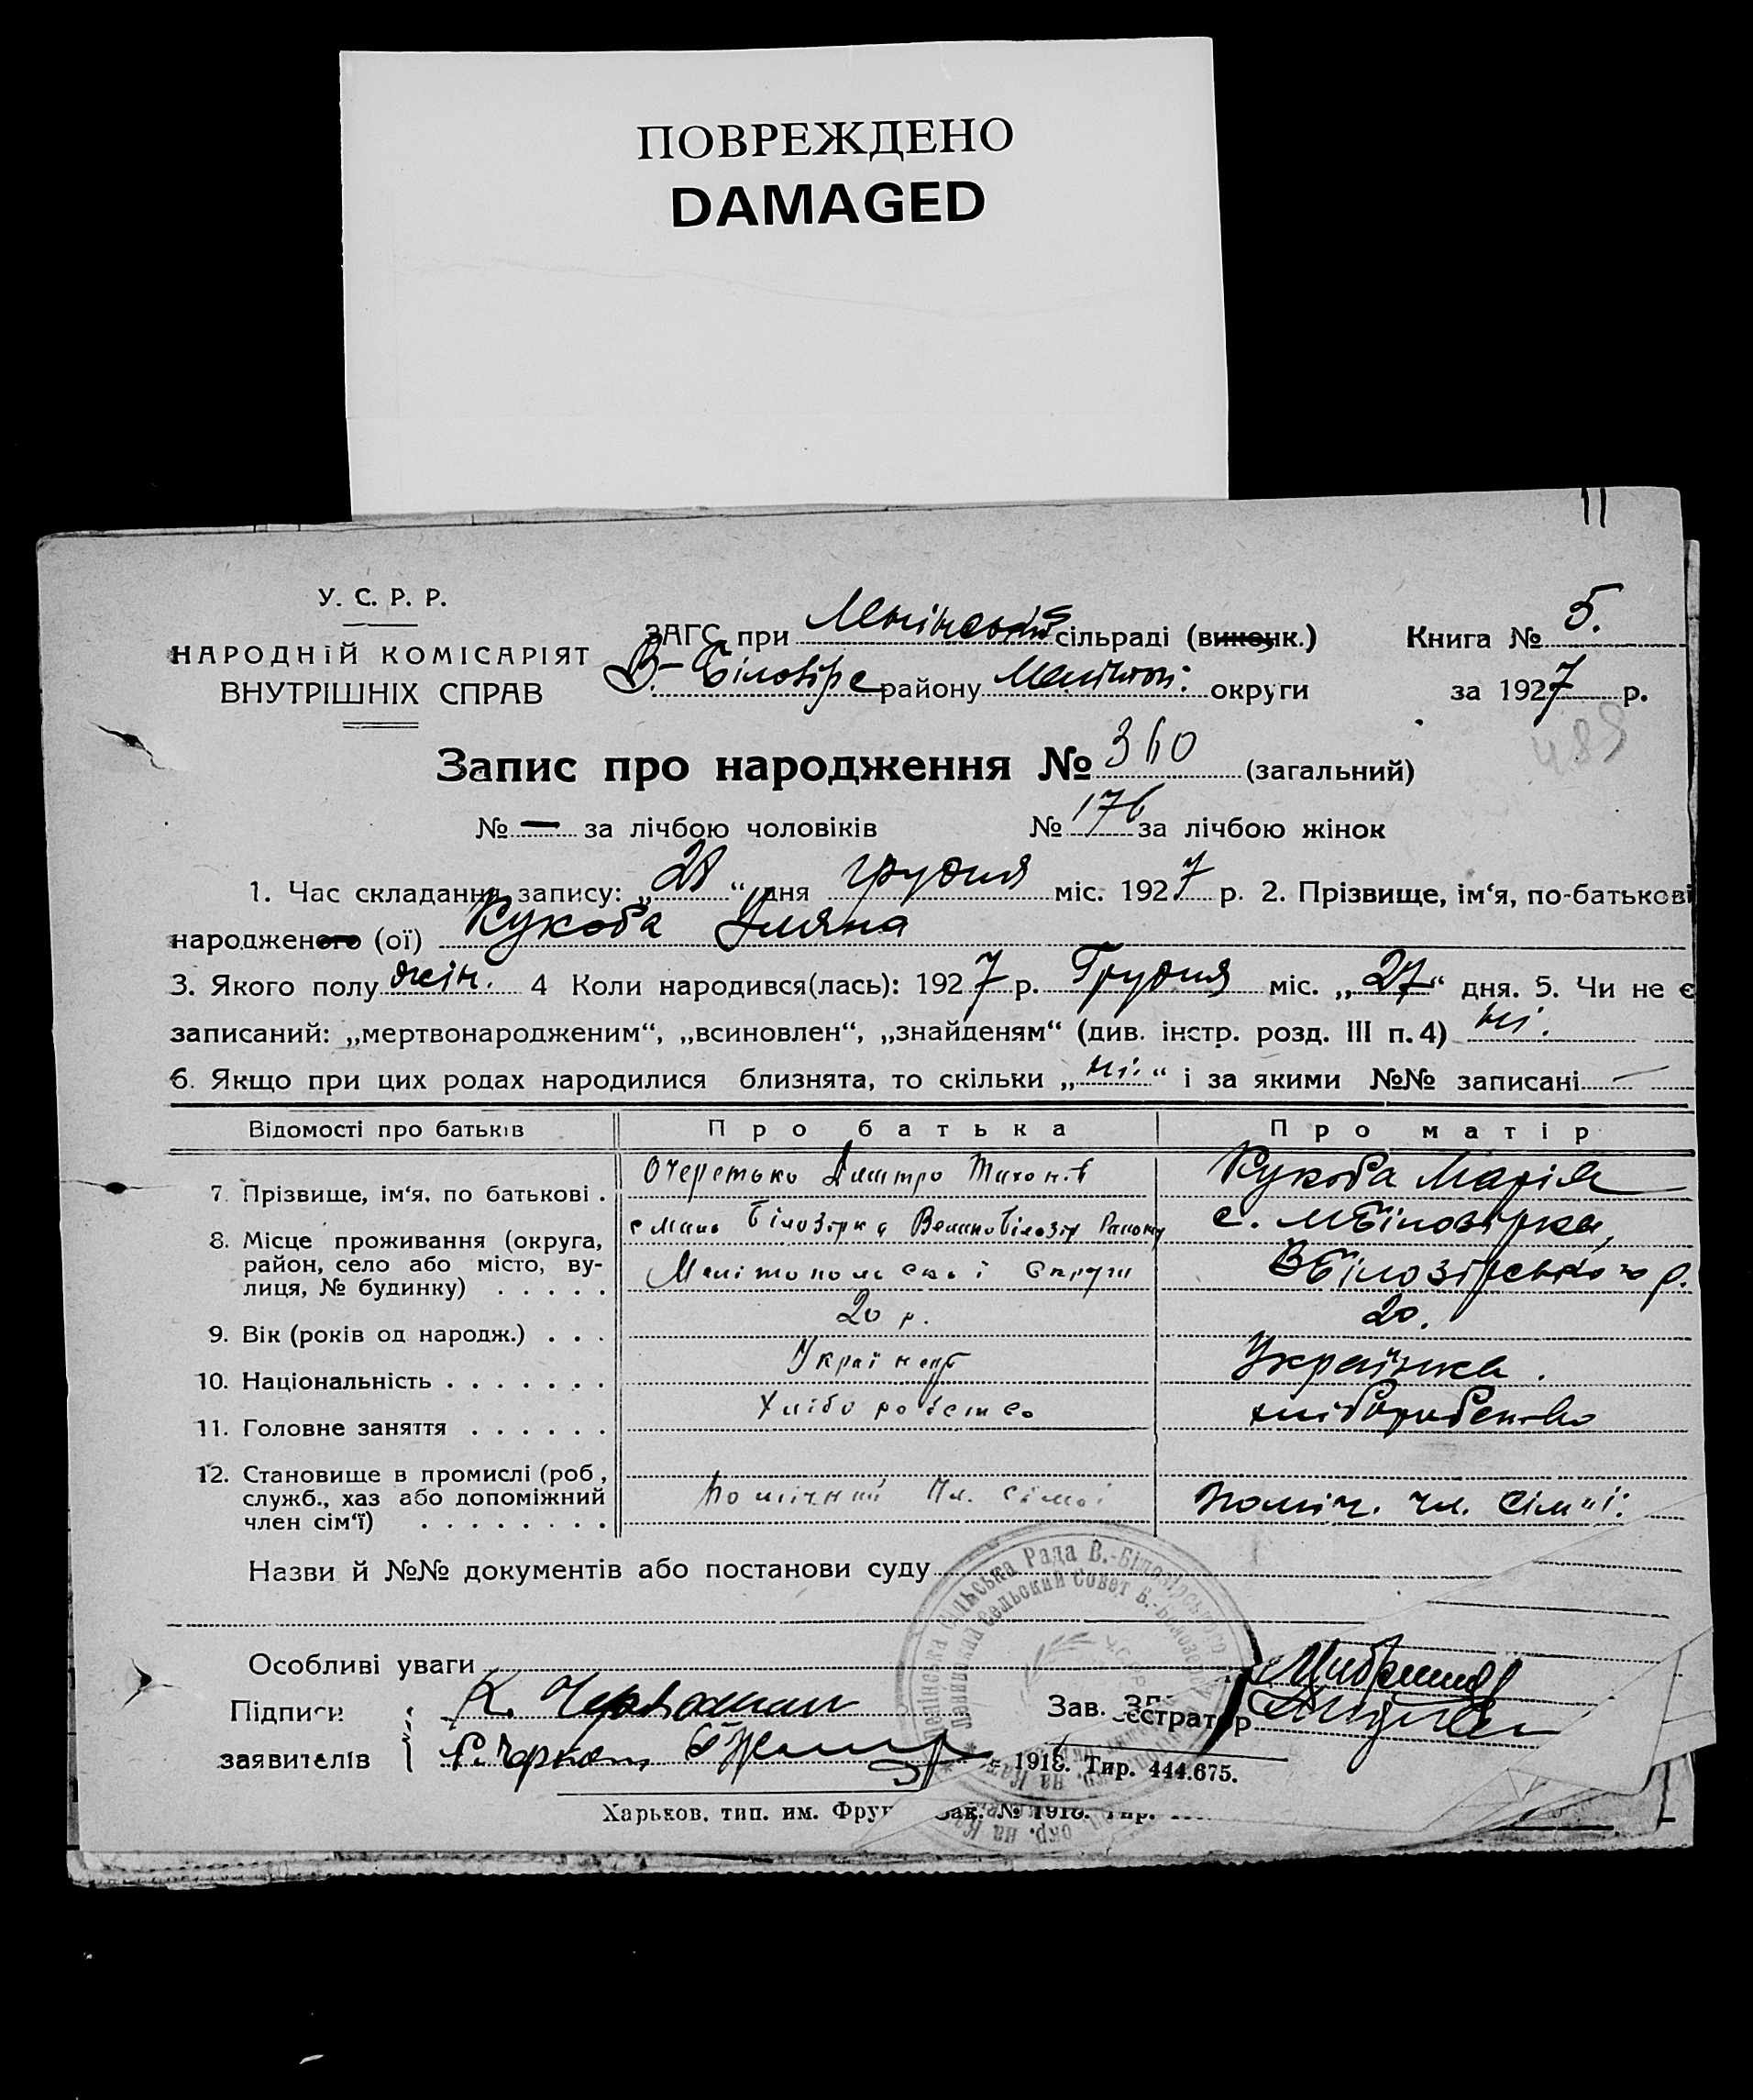 ПОВРЕЖДЕНО
DAMAGED
11
У. С. Р. Р.
НАРОДНІЙ КОМІСАРІЯТ
ВНУТРІШНІХ СПРАВ
ЗАГС при Ленінській сільраді (виконк.)
В-Білозірс району Меліт. округи
Книга № 5.
за 1927 р.
489
Запис про народження № 360 (загальний)
№ — за лічбою чоловіків № 176 за лічбою жінок
1. Час складання запису: „28“ дня грудня міс. 1927 р. 2. Прізвище, ім‘я, по-батькові
народженого (ої) Кукоба Уляна
3. Якого полу жін. 4 Коли народився(лась): 1927 р. Грудня міс. „27“ дня. 5. Чи не є
записаний: „мертвонародженим“, „всиновлен“, „знайденям“ (див. інстр. розд. III п. 4) ні.
6. Якщо при цих родах народилися близнята, то скільки „ні“ і за якими №№ записані —
Відомості про батьків Про батька Про матір
7. Прізвище, ім‘я, по батькові . Очеретько Дмитро Тихон.в Кукоба Марія
8. Місце проживання (округа, район, село або місто, вулиця, № будинку) . . . . . с Мало Білозірка Великобілозір Району Мелітопольської Округи с. МБілозірка, ВБілозірського р.
9. Вік (років од народж.) . . . 20 р. 20.
10. Національність . . . . . . . Українець Українка.
11. Головне заняття . . . . . . Хліборобство хліборобство
12. Становище в промислі (роб, служб., хаз або допоміжний член сім‘ї) . . . . . . . . Помічний Чл. сімї Поміч. чл. Сім"ї.
Назви й №№ документів або постанови суду
Особливі уваги
Підписи
заявителів
Зав.
єстратор
1918. Тир. 444.675.
Харьков, тип. им. Фрун Зак. № 1918. Тир.
Ленінська Сільська Рада В.-Білозірського
Сельский Совет В.-Белозер